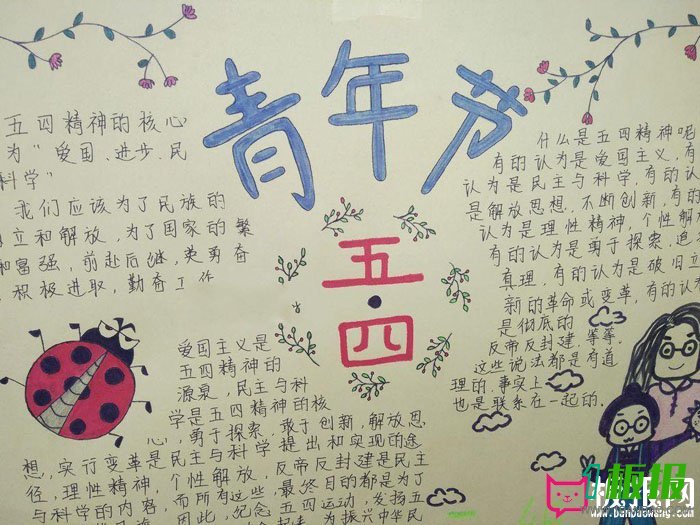 青年节
五·四
五四精神的核心
为"爱国、进步、民
科学"
我们应该为了民族的
立和解放,为了国家的繁
和富强,前赴后继,英勇奋
积极进取,勤奋工作
什么是五四精神呢
有的认为是爱国主义,有
认为是民主与科学,有的认
是解放思想,不断创新,有的
认为是理性精神,个性解
有的认为是勇于探索,追
真理,有的认为是破旧立
新的革命或变革,有的认为
是彻底的
反帝反封建,等等.
这些说法都是有道
理的.事实上
也是联系在一起的.
爱国主义是
五四精神的
源泉,民主与科
学是五四精神的核
心,勇于探索、敢于创新,解放思
想,实行变革是民主与科学提出和实现的途
径,理性精神,个性解放,反帝反封建是民主
与科学的内容,而所有这些,最终目的都是为了
因此,纪念五四运动,发扬五
为振兴中华民
板报
板报网
www.banbaowang.com